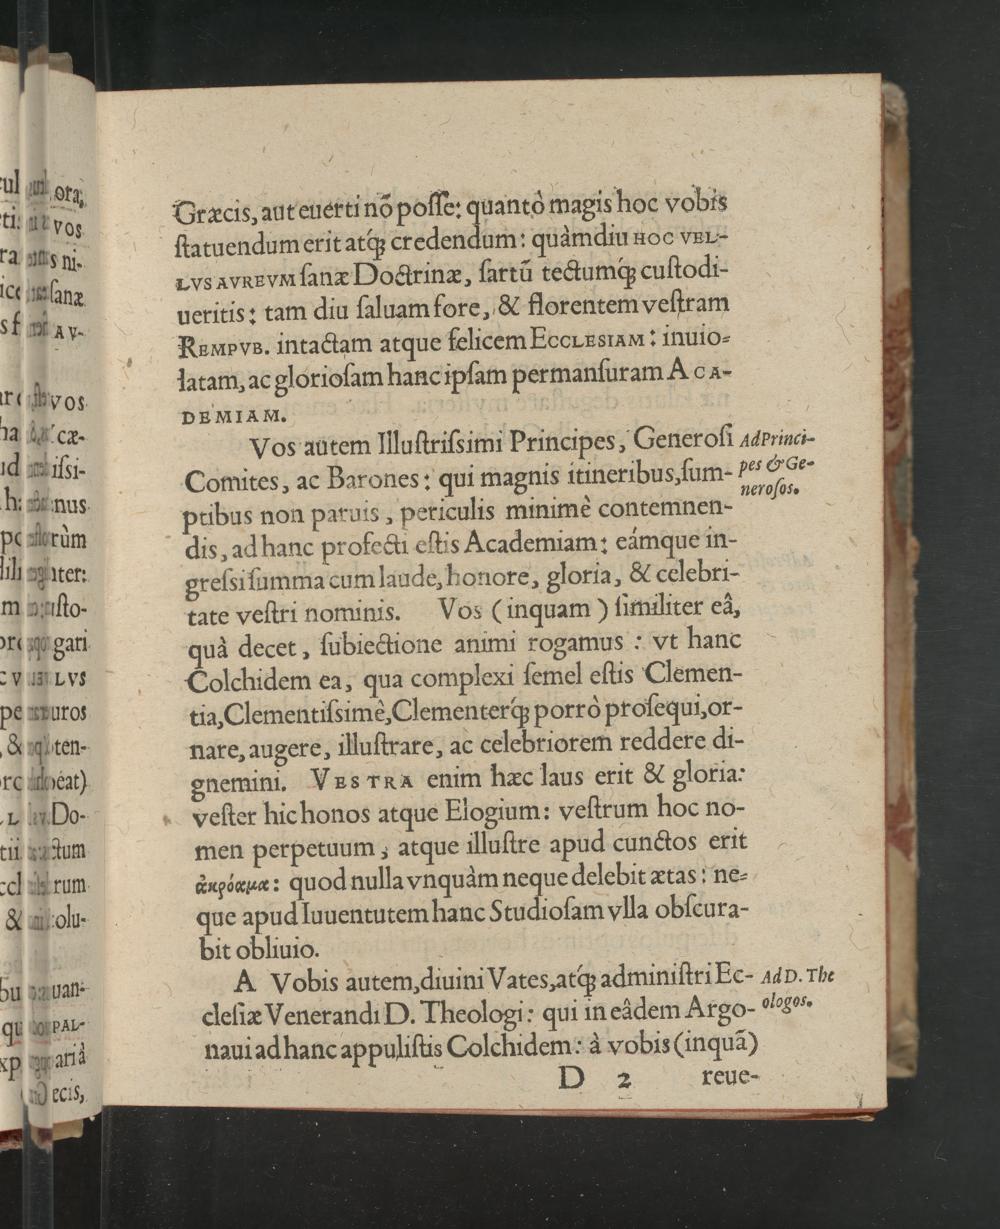 Græcis, aut euerti nõ posse: quantò magis hoc vobis
statuendum erit atq́; credendum: quàmdiu HOC VEL-
LVS AVREVM sanæ Doctrinæ, sartũ tectumq́; custodi-
ueritis: tam diu saluam fore, & florentem vestram
REMPVB. intactam atque felicem ECCLESIAM: inuio-
latam, ac gloriosam hanc ipsam permansuram ACA-
DEMIAM.
Vos autem Illustrissimi Principes, Generosi
Ad Princi-
Comites, ac Barones: qui magnis itineribus, sum-
pes & Ge-
nerosos.
ptibus non paruis, periculis minimè contemnen-
dis, ad hanc profecti estis Academiam: eámque in-
gressi summa cum laude, honore, gloria, & celebri-
tate vestri nominis. Vos (inquam) similiter eâ,
quà decet, subiectione animi rogamus: vt hanc
Colchidem ea, qua complexi semel estis Clemen-
tia, Clementissimè, Clementerq́; porrò prosequi, or-
nare, augere, illustrare, ac celebriorem reddere di-
gnemini. VESTRA enim hæc laus erit & gloria:
vester hic honos atque Elogium: vestrum hoc no-
men perpetuum, atque illustre apud cunctos erit
ἀκρόαμα: quod nulla vnquàm neque delebit ætas: ne-
que apud Iuuentutem hanc Studiosam vlla obscura-
bit obliuio.
A Vobis autem, diuini Vates, atq́; administri Ec-
Ad D. The
clesiæ Venerandi D. Theologi: qui in eâdem Argo-
ologos.
naui ad hanc appulistis Colchidem: à vobis (inquã)
D 2 reue-